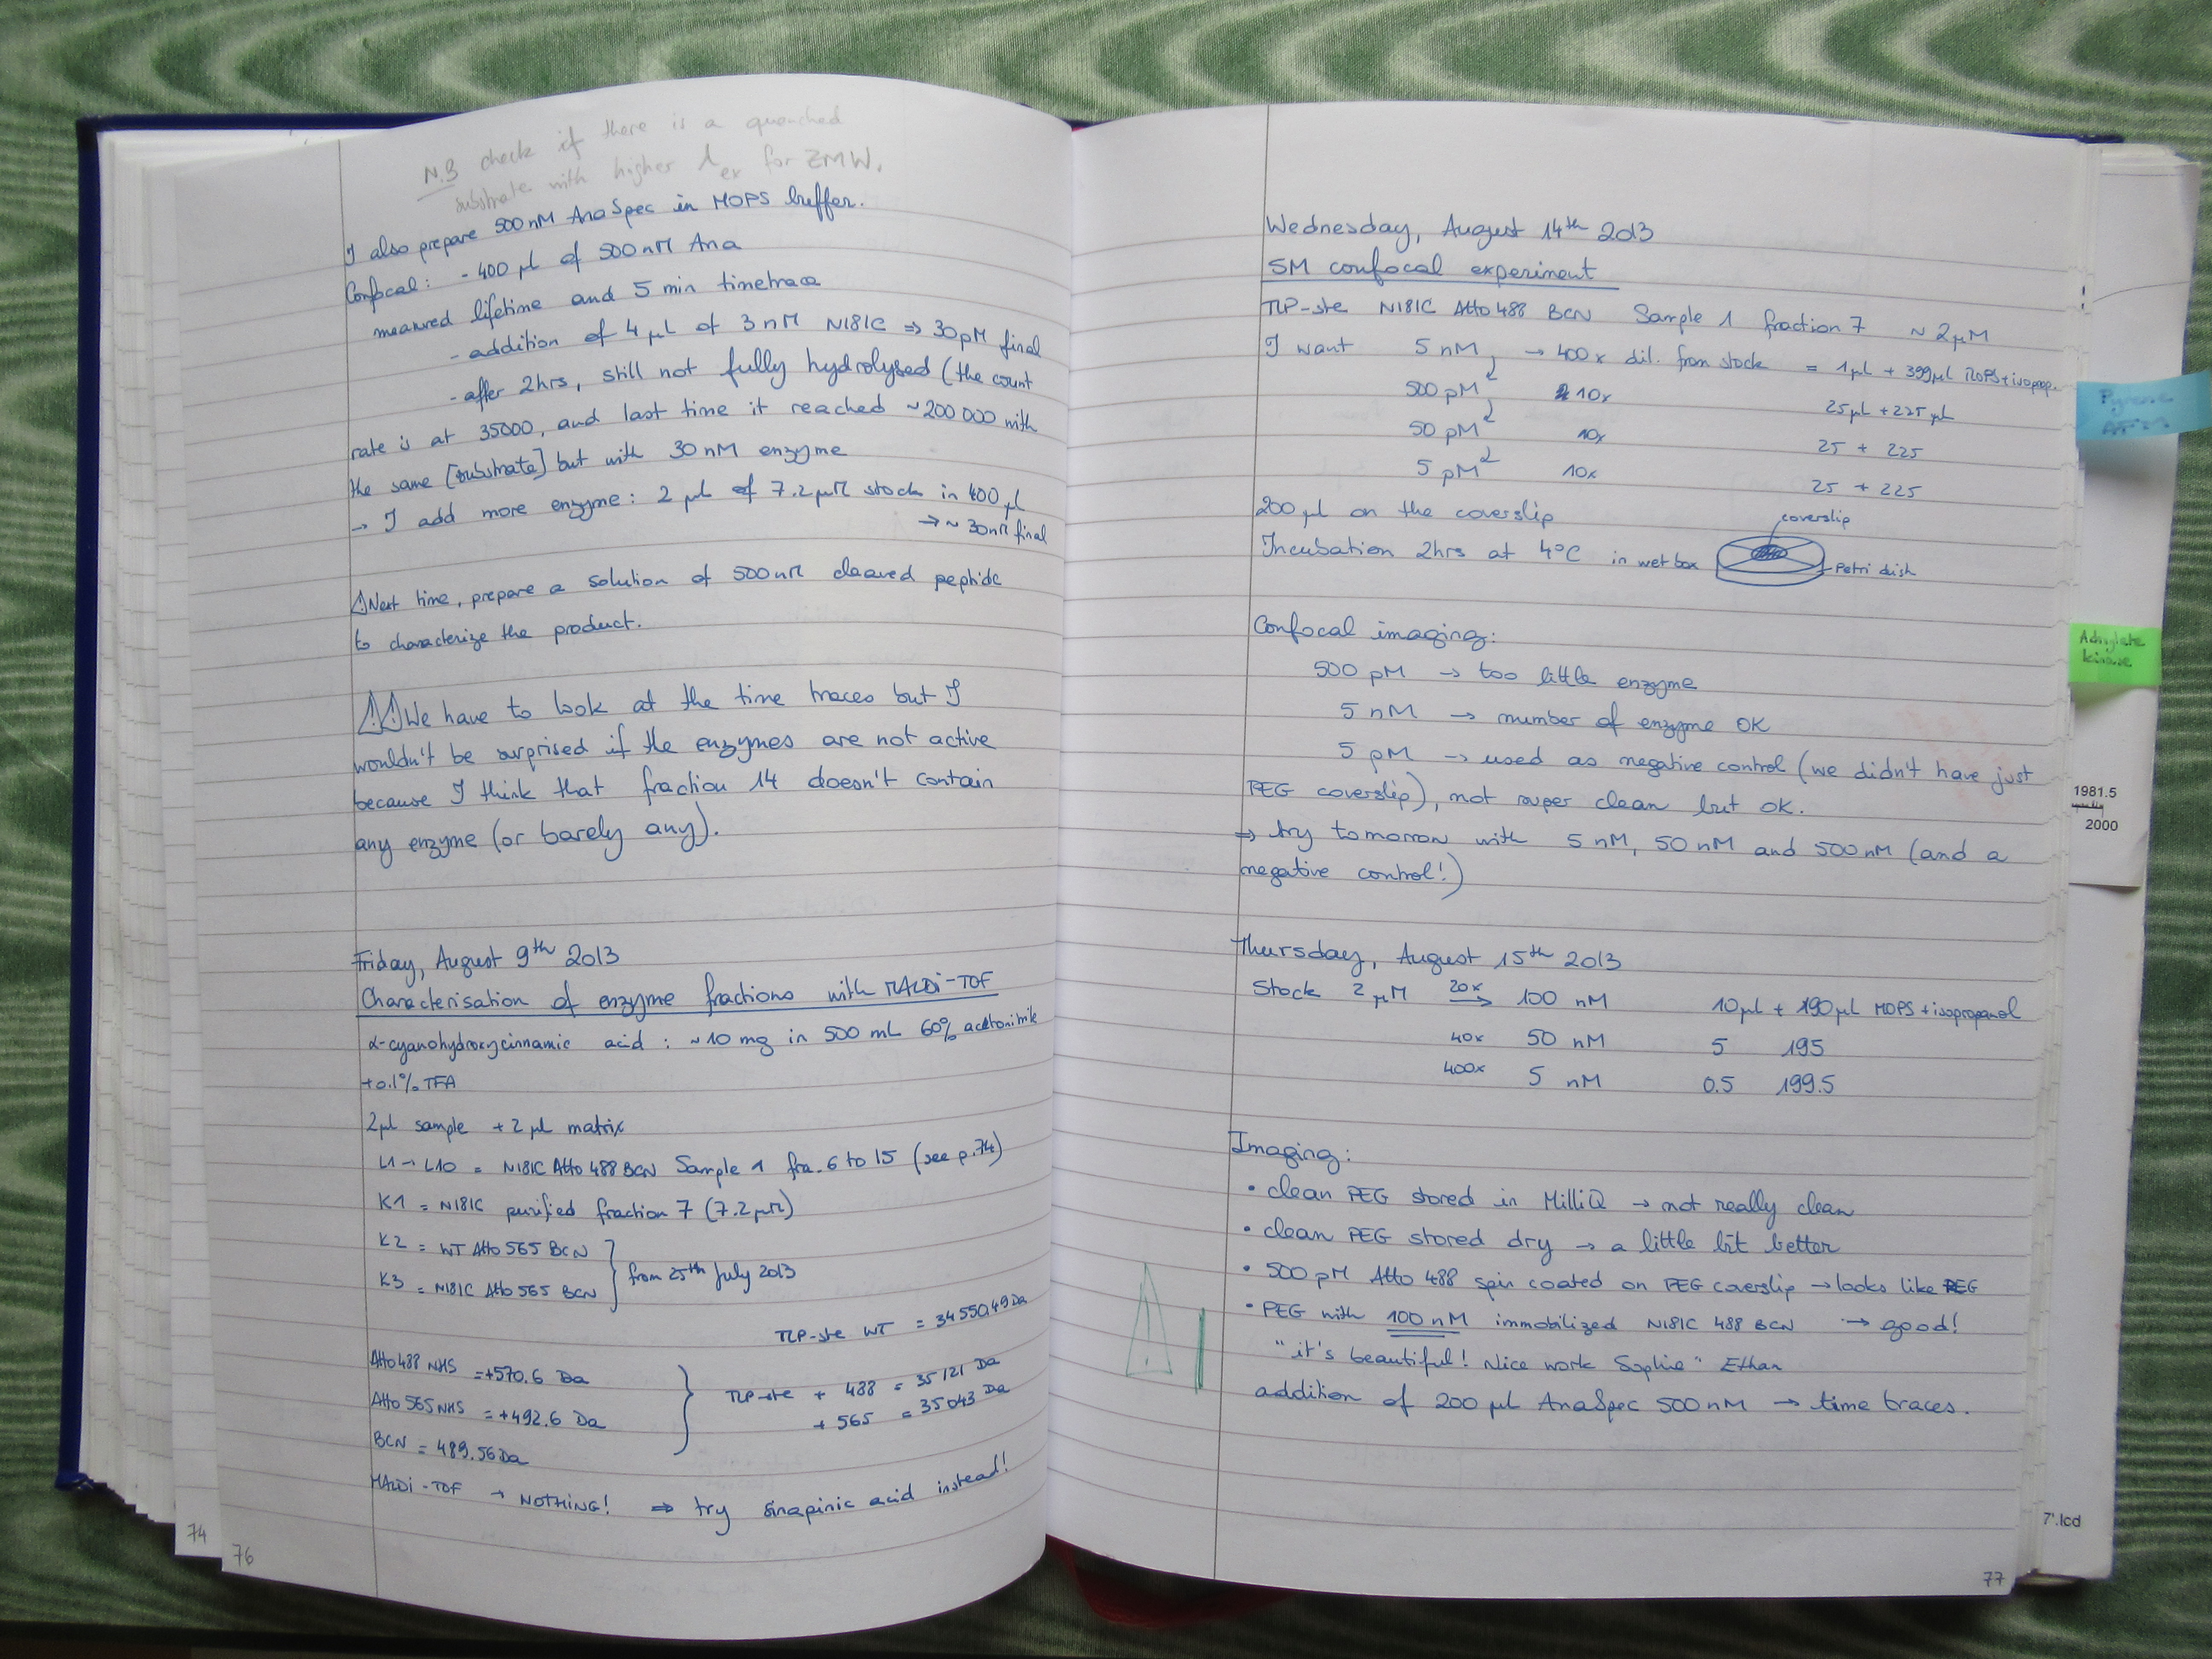 N.B check if there is a quenched
substrate with higher λex for ZMW.
I also prepare 500 nM AnaSpec in MOPS buffer.
Confocal: - 400 µl of 500 nM Ana
measured lifetime and 5 min timetrace
- addition of 4 µL of 3 nM N181C ⇒ 30 pM final
- after 2hrs, still not fully hydrolysed (the count
rate is at 35000, and last time it reached ~200 000 with
the same [substrate] but with 30 nM enzyme
→ I add more enzyme: 2 µl of 7.2 µM stock in 400 µl
→ ~ 30 nM final
⚠ Next time, prepare a solution of 500 nM cleaved peptide
to characterize the product.
⚠⚠ We have to look at the time traces but I
wouldn't be surprised if the enzymes are not active
because I think that fraction 14 doesn't contain
any enzyme (or barely any).
Friday, August 9th 2013
Characterisation of enzyme fractions with MALDi-TOF
α-cyanohydroxycinnamic acid : ~10 mg in 500 mL 60% acetonitrile
+0.1% TFA
2µl sample + 2 µl matrix
L1 → L10 = N181C Atto 488 BCN Sample 1 fra. 6 to 15 (see p.74)
K1 = N181C purified fraction 7 (7.2 µM)
K2 = WT Atto 565 BCN
K3 = N181C Atto 565 BCN } from 25th July 2013
TLP-ste WT = 34550.49 Da
Atto 488 NHS = +570.6 Da
Atto 565 NHS = +492.6 Da } TLP-ste + 488 = 35121 Da
+ 565 = 35043 Da
BCN = 489.56 Da
MALDi-TOF → NOTHING! ⇒ try sinapinic acid instead!
74
76
Wednesday, August 14th 2013
SM confocal experiment
TLP-ste N181C Atto 488 BCN Sample 1 fraction 7 ~ 2µM
I want 5 nM → 400x dil. from stock = 1µl + 399µl MOPS+isoprop.
500 pM 10x 25µl + 225 µl
50 pM 10x 25 + 225
5 pM 10x 25 + 225
200 µl on the coverslip
coverslip
Incubation 2hrs at 4°C in wet box
Petri dish
Confocal imaging:
500 pM → too little enzyme
5 nM → number of enzyme OK
5 pM → used as negative control (we didn't have just
PEG coverslip), not super clean but OK.
⇒ try tomorrow with 5 nM, 50 nM and 500 nM (and a
negative control!)
Thursday, August 15th 2013
Stock 2 µM 20x → 100 nM 10µl + 190µl MOPS + isopropanol
40x 50 nM 5 195
400x 5 nM 0.5 199.5
Imaging:
• clean PEG stored in MilliQ → not really clean
• clean PEG stored dry → a little bit better
• 500 pM Atto 488 spin coated on PEG coverslip → looks like PEG
• PEG with 100 nM immobilized N181C 488 BCN → good!
"it's beautiful! Nice work Sophie" Ethan
addition of 200 µl AnaSpec 500 nM → time traces.
77
Adenylate
kinase
1981.5
2000
7'.lcd